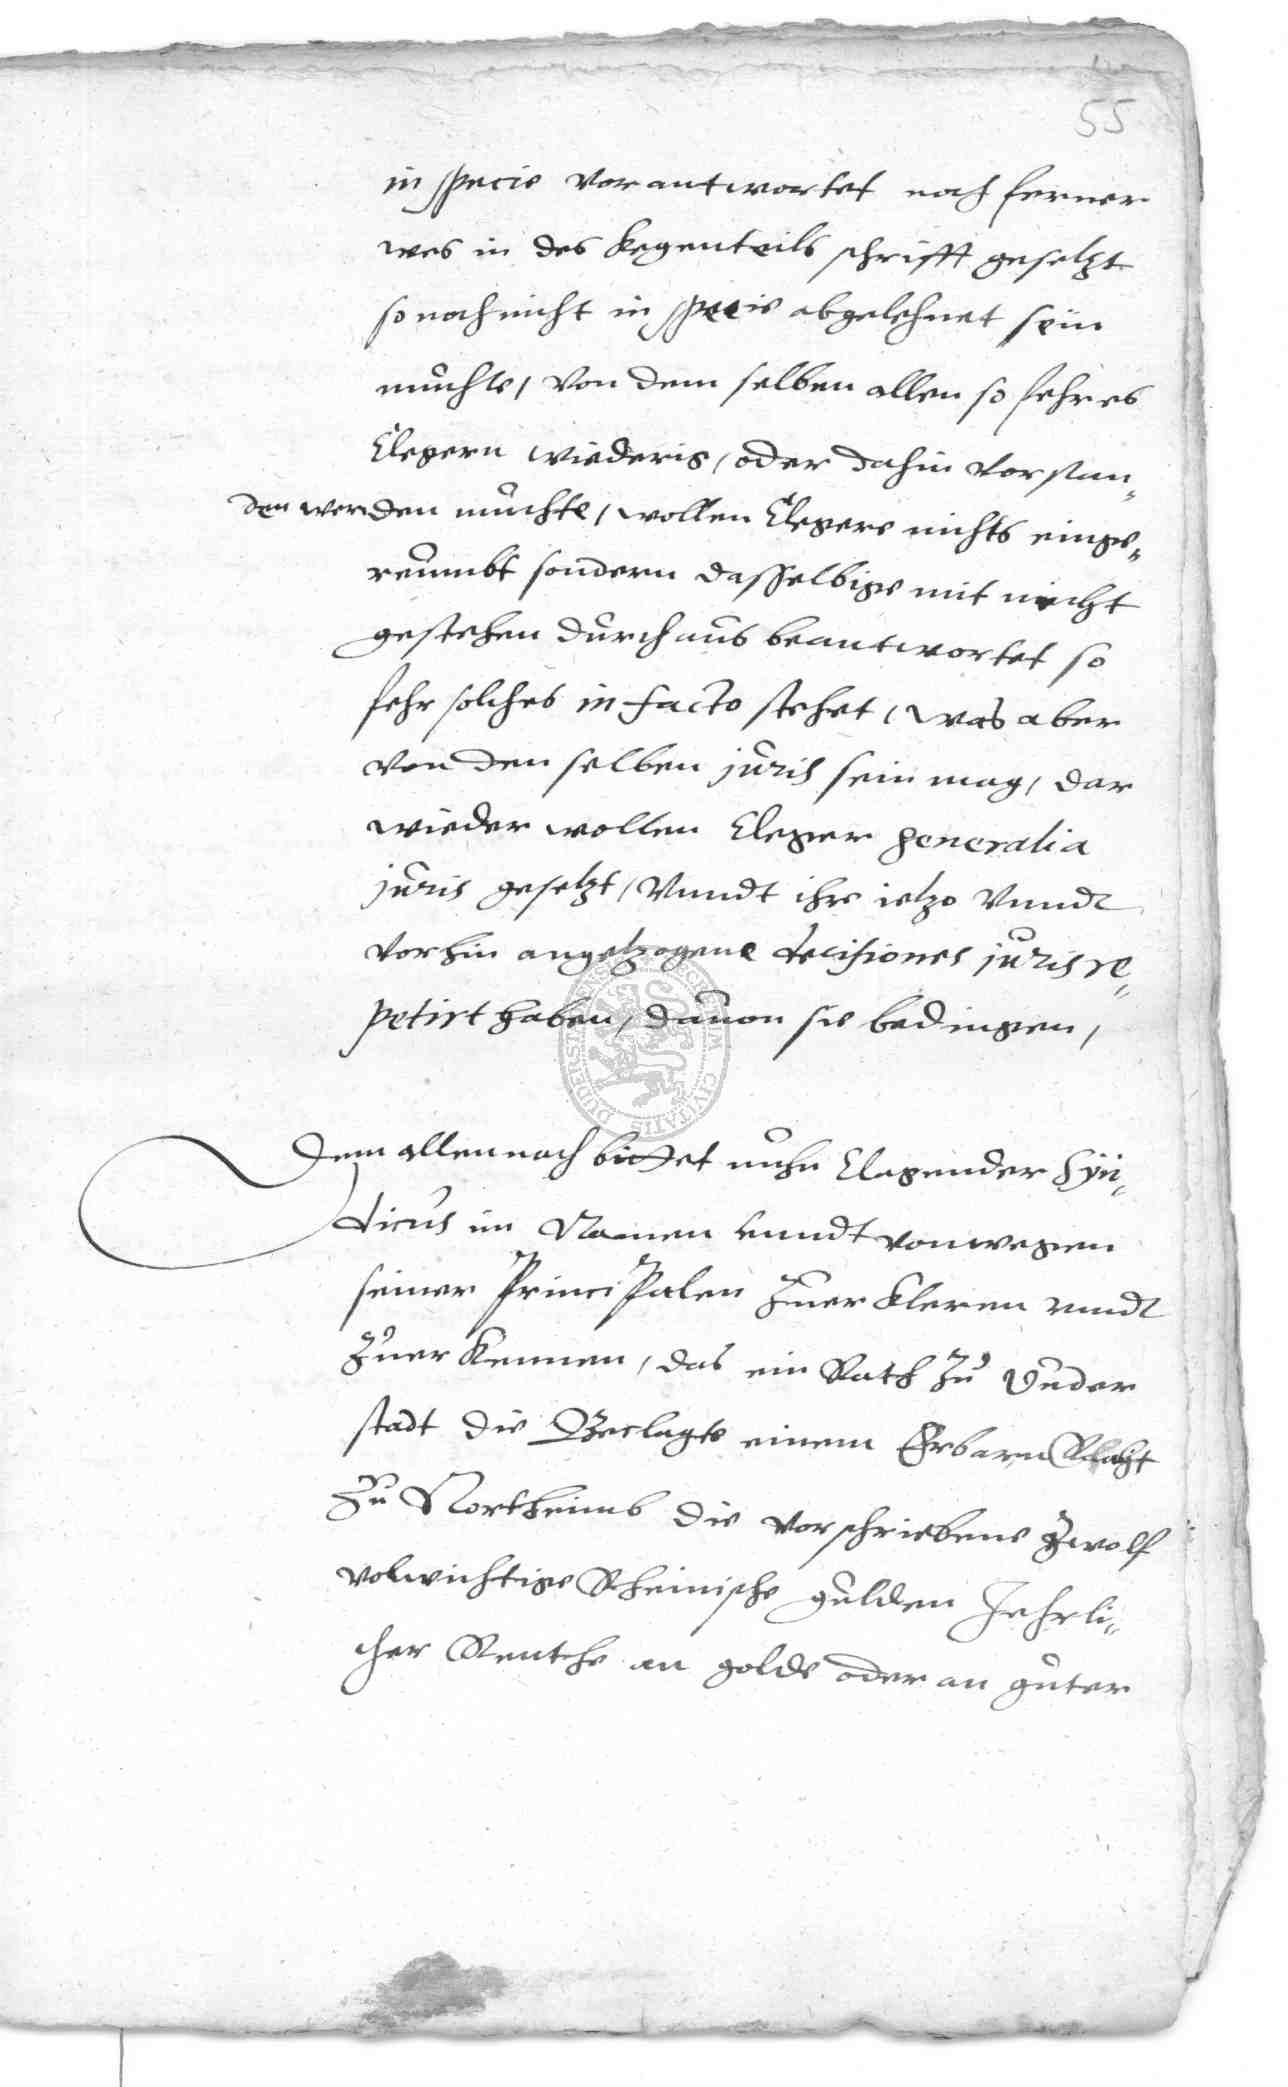 55
in specie vorantwortet noch ferner
wes in des kegenteils schrifft gesetzt
so noch nicht in specie abgelehnet sein
muchte, von dem selben allen so fehr es
Clegern wiederig, oder dahin vorstan„
den werden muchte, wollen Clegere nichts einge„
reumbt sondern dasselbige mit nicht
gestehen durchaus beantwortet so
fehr solches in facto stehet, was aber
von den selben juris sein mag, dar
wieder wollen Cleger generalia
juris gesetzt, vnndt ihre ietzo vnndt
vorhin angetzogene decisiones juris re„
petirt haben, dauon sie bedingen,
Dem allen nach bittet nuhn Clagender Syn„
dicus im Namen vnndt von wegen
seiner Principalen Zuerkleren vnndt
Zuerkennen, das ein Rath Zu Duder
stadt die Beclagte einem Erbarn Raht
Zu Northeimb die vorschriebene Zwolf
volwichtige Rheinische gulden Jehrli„
cher Renthe an golde oder an guter
DUDERSTADENSIS CIVITATIS